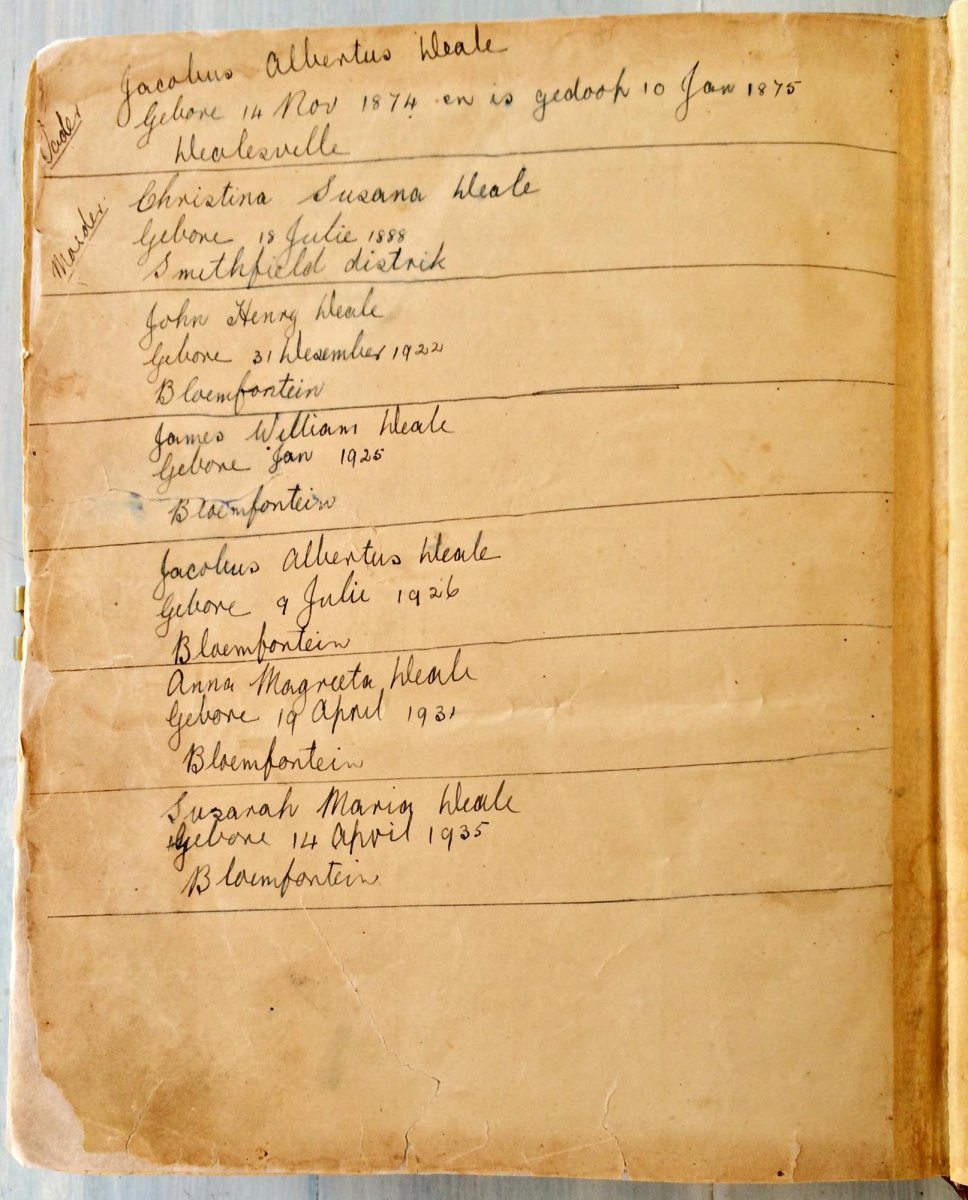 Vader
Jacobus Albertus Weale
Gebore 14 Nov 1874 en is gedoop 10 Jan 1875
Wealesville
Moeder
Christina Susana Weale
Gebore 18 Julie 1888
Smithfield distrik
John Henry Weale
Gebore 31 Desember 1922
Bloemfontein
James William Weale
Gebore Jan 1925
Bloemfontein
Jacobus Albertus Weale
Gebore 9 Julie 1926
Bloemfontein
Anna Magrieta Weale
Gebore 19 April 1931
Bloemfontein
Susarah Maria Weale
Gebore 14 April 1935
Bloemfontein